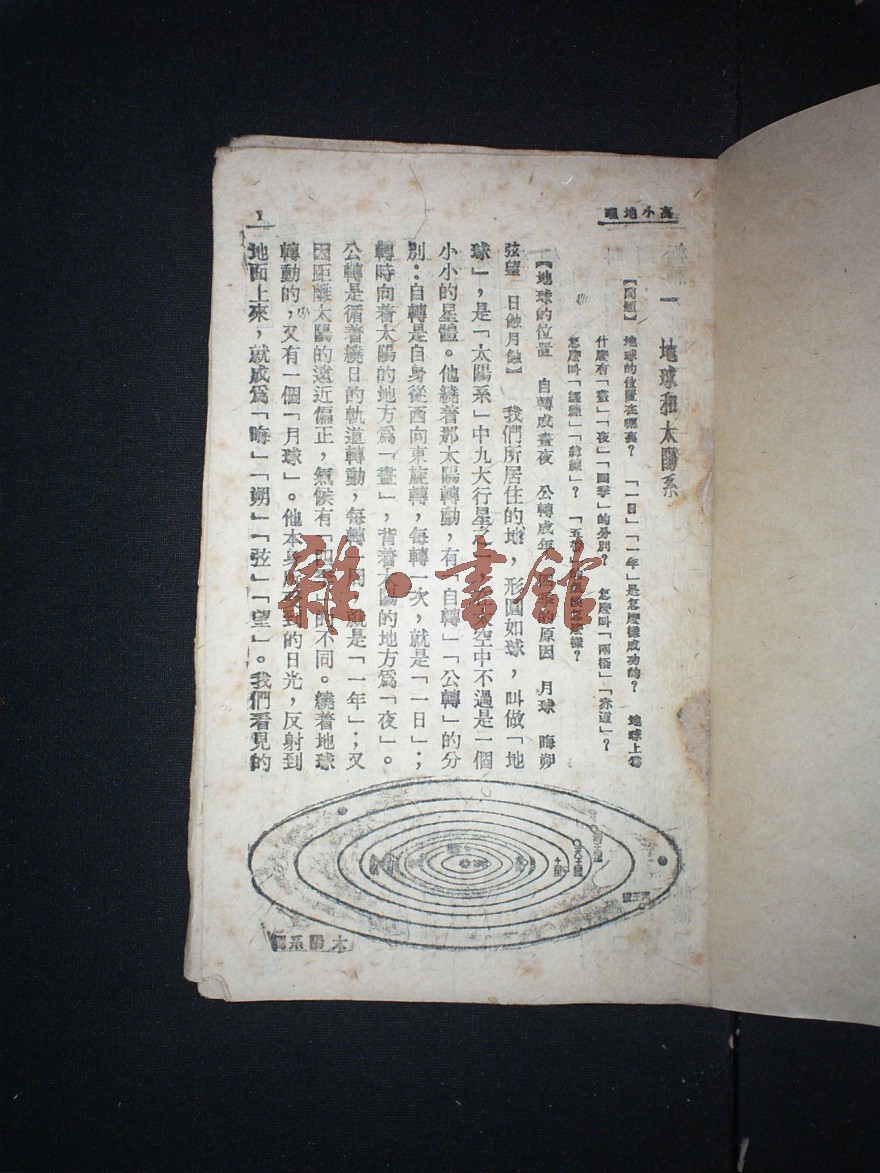 高小地理
一 地球和太陽系
【問題】 地球的位置在哪裏？ 「一日」「一年」是怎麼樣成功的？ 地球上爲
什麼有「晝」「夜」「四季」的分別？ 怎麼叫「兩極」「赤道」？
怎麼叫「經線」「緯線」？ 「五帶」
【地球的位置 自轉成晝夜 公轉成年 的原因 月球 晦朔
弦望 日蝕月蝕】 我們所居住的地，形圓如球，叫做「地
球」，是「太陽系」中九大行星之一，在太空中不過是一個
小小的星體。他繞着那太陽轉動，有「自轉」「公轉」的分
別：自轉是自身從西向東旋轉，每轉一次，就是「一日」；
轉時向着太陽的地方爲「晝」，背着太陽的地方爲「夜」。
公轉是循着繞日的軌道轉動，每轉一周，就是「一年」；又
因距離太陽的遠近偏正，氣候有「四季」的不同。繞着地球
轉動的，又有一個「月球」。他本身 到的日光，反射到
地面上來，就成爲「晦」「朔」「弦」「望」。我們看見的
1
天王星
土星
太陽系圖
雜·書館